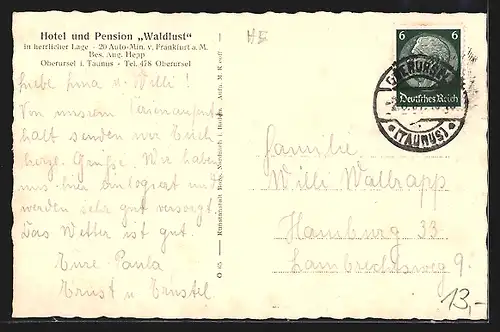 Hotel und Pension „Waldlust"
in herrlicher Lage - 20 Auto-Min. v. Frankfurt a. M.
Bes. Aug. Hepp
Oberursel i. Taunus - Tel. 478 Oberursel
Liebe Erna u. Willi!
Von unserem Ferienaufent
halt senden wir Euch
herzl. Grüße. Wir haben
uns hier einlogiert und
werden sehr gut versorgt.
Das Wetter ist gut.
Eure Paula
Ernst u. Ernstel
Familie
Willi Wallrapp
Hamburg 33
Lambrechtsweg 9.
6 6
Deutsches Reich
OBERURSEL
(TAUNUS)
13,-